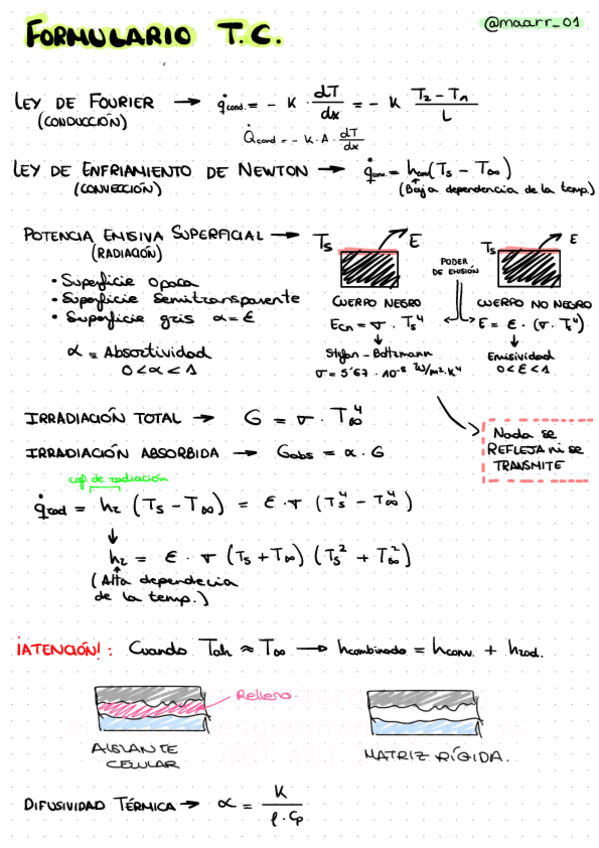 FORMULARIO T.C.
@maarr_01
LEY DE FOURIER → q̇cond. = - K · dT/dx = - K (T₂ - T₁)/L
(CONDUCCIÓN)
Q̇cond = - K · A · dT/dx
LEY DE ENFRIAMIENTO DE NEWTON → q̇conv = hconv(Ts - T∞)
(CONVECCIÓN)
(Baja dependencia de la temp.)
POTENCIA EMISIVA SUPERFICIAL →
(RADIACIÓN)
Ts E
Ts E
PODER
DE EMISIÓN
• Superficie opaca
• Superficie Semitransparente
• Superficie gris α = ε
CUERPO NEGRO
Ecn = σ · Ts⁴
Stefan - Boltzmann
σ = 5'67 · 10⁻⁸ W/m²·K⁴
CUERPO NO NEGRO
E = ε · (σ · Ts⁴)
Emisividad
0 < ε < 1
α = Absortividad
0 < α < 1
IRRADIACIÓN TOTAL → G = σ · T∞⁴
IRRADIACIÓN ABSORBIDA → Gabs = α · G
Nada se
REFLEJA ni se
TRANSMITE
cof. de radiación
q̇rad = hr (Ts - T∞) = ε · σ (Ts⁴ - T∞⁴)
hr = ε · σ (Ts + T∞) (Ts² + T∞²)
(Alta dependecia
de la temp.)
¡ATENCIÓN!: Cuando Talr ≈ T∞ → hcombinado = hconv. + hrad.
Relleno.
AISLANTE
CELULAR
MATRIZ RÍGIDA.
DIFUSIVIDAD TÉRMICA → α = K/(ρ · Cp)